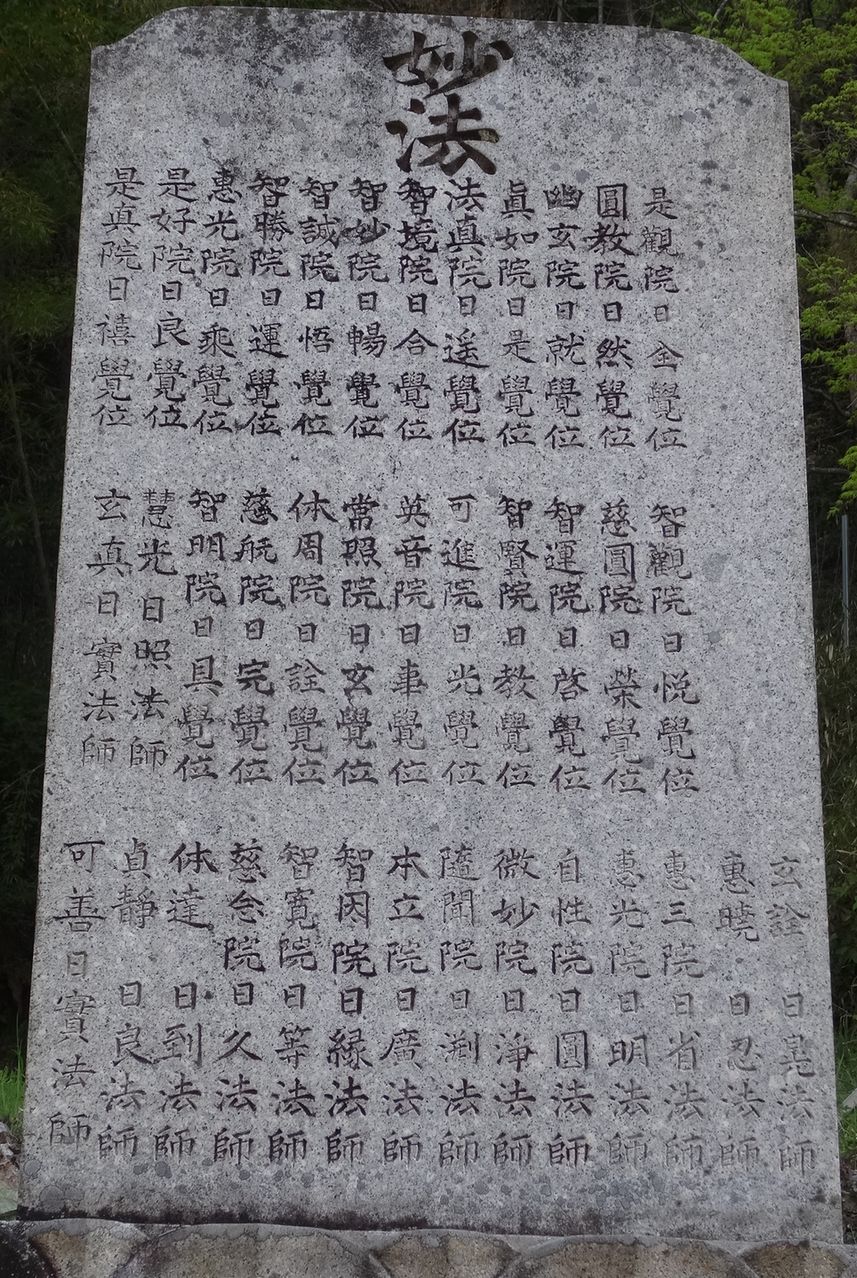 妙法
是觀院日全覺位
圓教院日然覺位
幽玄院日就覺位
眞如院日是覺位
法真院日遥覺位
智境院日合覺位
智妙院日暢覺位
智誠院日悟覺位
智勝院日運覺位
惠光院日乘覺位
是好院日良覺位
是真院日禧覺位
智觀院日悦覺位
慈圓院日榮覺位
智運院日啓覺位
智賢院日教覺位
可進院日光覺位
英音院日事覺位
常照院日玄覺位
体周院日詮覺位
慈航院日完覺位
智明院日具覺位
慧光日照法師
玄真日實法師
玄詮日晃法師
惠曉日忍法師
惠三院日省法師
惠光院日明法師
自性院日圓法師
微妙院日浄法師
隨聞院日渕法師
本立院日廣法師
智因院日縁法師
智寛院日等法師
慈念院日久法師
体達日到法師
貞靜日良法師
可善日實法師